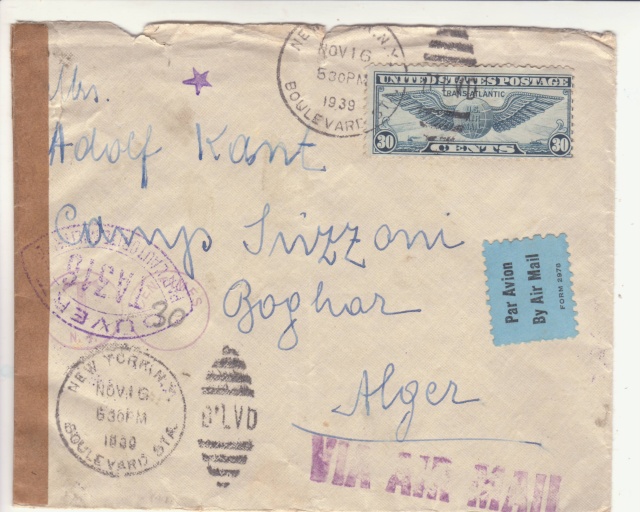 NEW YORK, N.Y.
NOV 16
530PM
1939
BOULEVARD STA.
UNITED STATES POSTAGE
TRANS-ATLANTIC
30 CENTS 30
Mrs.
Adolf Kant
Camp Suzzoni
Boghar
Alger
Par Avion
By Air Mail
FORM 2978
OUVER
30
NEW YORK, N.Y.
NOV 16
630PM
1939
BOULEVARD STA.
B'LVD
VIA AIR MAIL